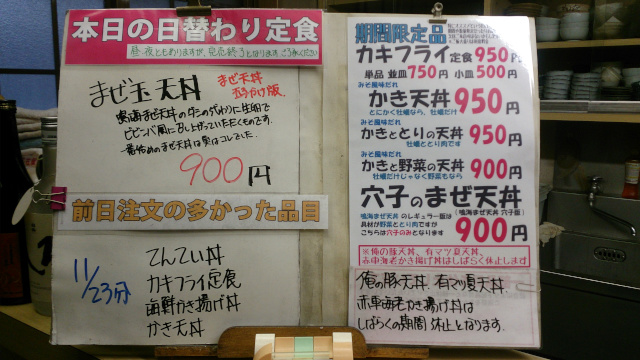 本日の日替わり定食
昼・夜ともありますが、完売終了となります。ご了承ください
まぜ玉天丼
まぜ天丼
900円
前日注文の多かった品目
11/23分
てんてい丼
カキフライ定食
海鮮かき揚げ丼
かき天丼
期間限定品
カキフライ定食950円
単品 並皿750円 小皿500円
みそ風味だれ
かき天丼 950円
とにかく牡蠣なら、牡蠣だけ
みそ風味だれ
かきととりの天丼 950円
牡蠣ととり肉です
みそ風味だれ
かきと野菜の天丼 900円
牡蠣だけじゃなく野菜もなら
穴子のまぜ天丼
(鳴海まぜ天丼 穴子版)
鳴海まぜ天丼のレギュラー版は
具材が野菜ととり肉ですが
こちらは穴子のみとなります
900円
※俺の豚天丼、有マツ夏天丼、
赤車海老かき揚げ丼はしばらく休止します
俺の豚天丼 有マツ夏天丼
赤車海老かき揚げ丼は
しばらくの期間 休止となります。